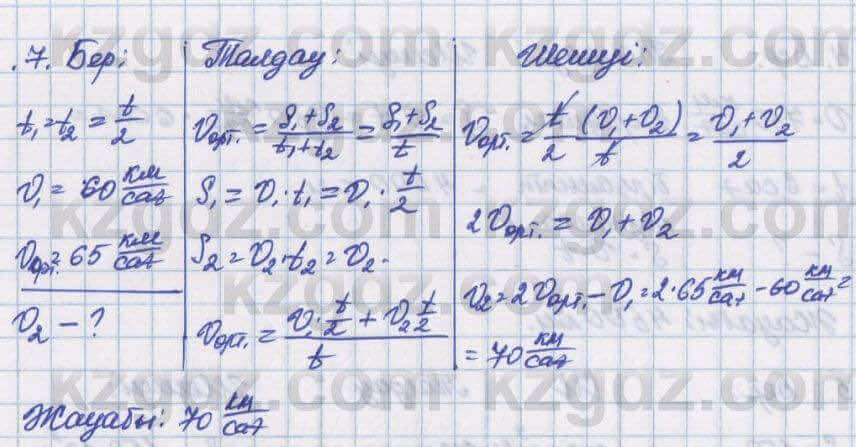 7. Бер:
t₁ = t₂ = t/2
v₁ = 60 км/сағ
vорт. = 65 км/сағ
v₂ – ?
Талдау:
vорт. = (S₁ + S₂)/(t₁ + t₂) = (S₁ + S₂)/t
S₁ = v₁ · t₁ = v₁ · t/2
S₂ = v₂ · t₂ = v₂ ·
vорт. = (v₁ · t/2 + v₂ t/2)/t
Шешуі:
vорт. = t/2 (v₁ + v₂)/t = (v₁ + v₂)/2
2vорт. = v₁ + v₂
v₂ = 2vорт. – v₁ = 2 · 65 км/сағ – 60 км/сағ =
= 70 км/сағ
Жауабы: 70 км/сағ
kzgdz.com